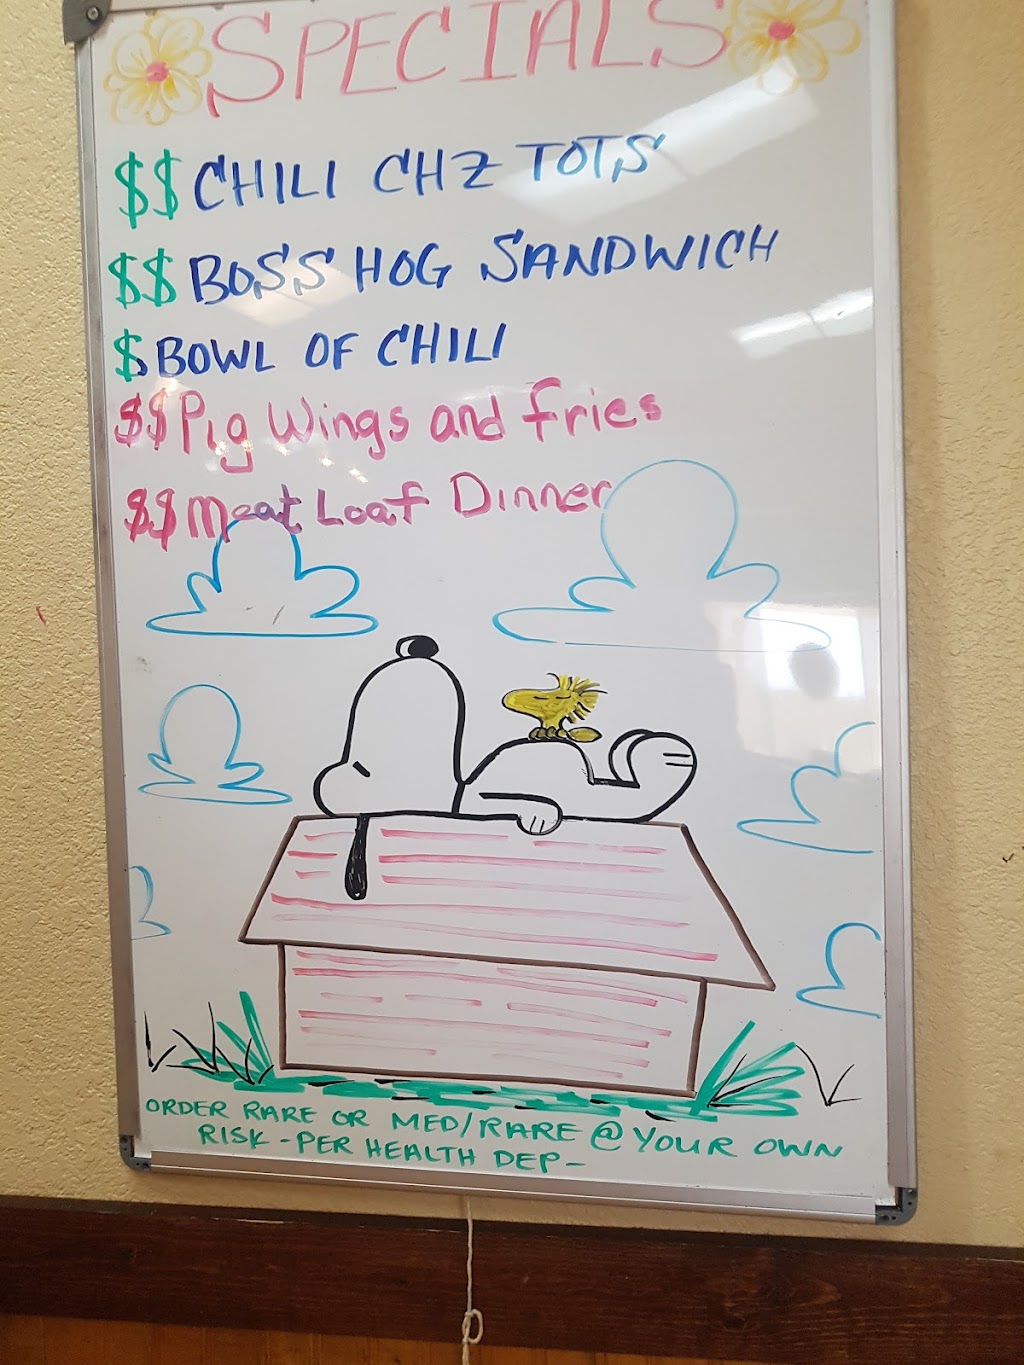 SPECIALS
$$ CHILI CHZ TOTS
$$ BOSS HOG SANDWICH
$ BOWL OF CHILI
$$ Pig Wings and fries
$$ Meat Loaf Dinner
ORDER RARE OR MED/RARE @ YOUR OWN
RISK - PER HEALTH DEP -